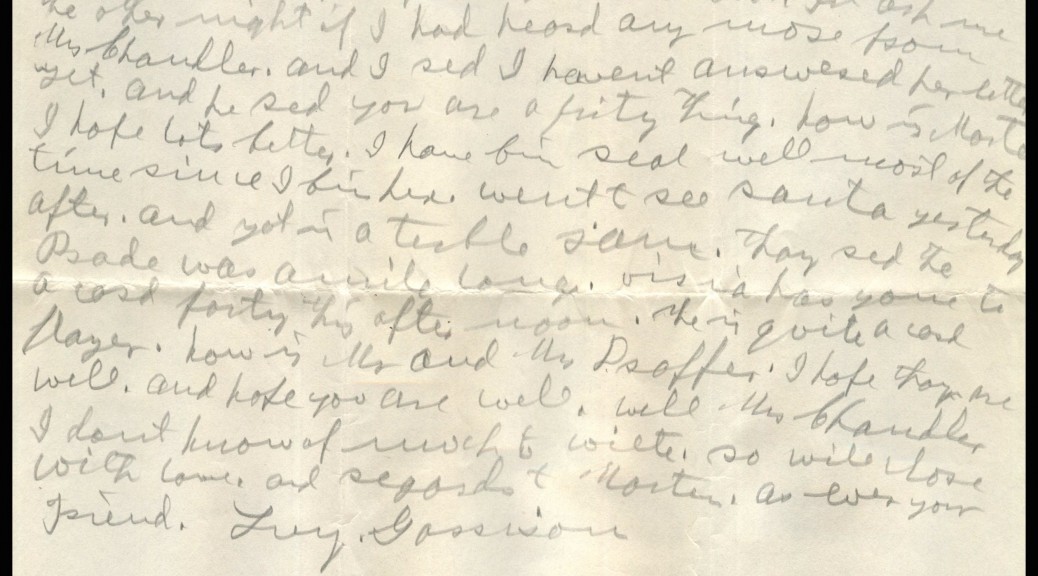 ask me
the other night if I had heard any more from
Mrs Chandler. and I sed I havent answered her letter
yet. and he sed you are a prity thing. how is Morte
I hope lots better. I have bin real well most of the
time since I bin here. went t see santa yesterday
after. and got in a terble jam. thay sed the
Prade was a mile long. has gone to
a card party this after noon. she is quite a card
Player. how is Mr and Mrs Proffer. I hope thay are
well. and hope you are well. well Mrs Chandler
I dont know of much to write. so will close
with love. and regards t Morten. as ever your
Friend. Garrison